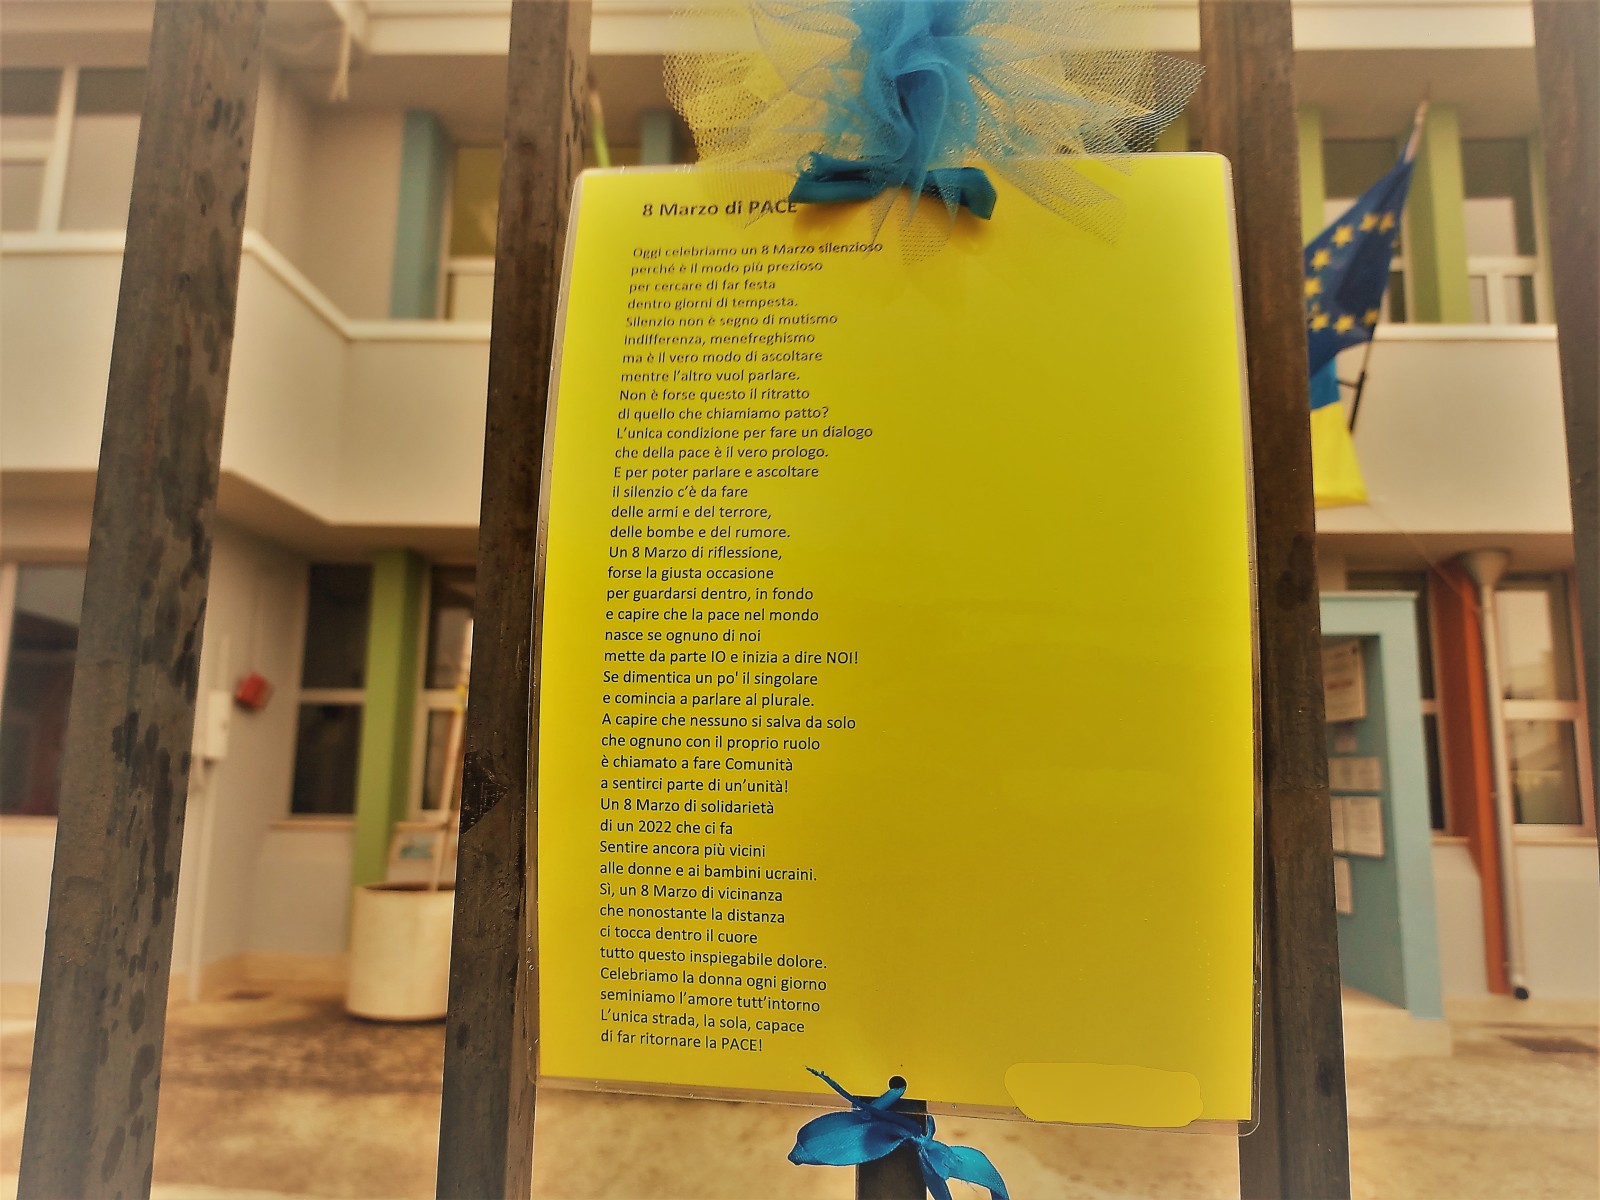 8 Marzo di PACE
Oggi celebriamo un 8 Marzo silenzioso
perché è il modo più prezioso
per cercare di far festa
dentro giorni di tempesta.
Silenzio non è segno di mutismo
indifferenza, menefreghismo
ma è il vero modo di ascoltare
mentre l'altro vuol parlare.
Non è forse questo il ritratto
di quello che chiamiamo patto?
L'unica condizione per fare un dialogo
che della pace è il vero prologo.
E per poter parlare e ascoltare
il silenzio c'è da fare
delle armi e del terrore,
delle bombe e del rumore.
Un 8 Marzo di riflessione,
forse la giusta occasione
per guardarsi dentro, in fondo
e capire che la pace nel mondo
nasce se ognuno di noi
mette da parte IO e inizia a dire NOI!
Se dimentica un po' il singolare
e comincia a parlare al plurale.
A capire che nessuno si salva da solo
che ognuno con il proprio ruolo
è chiamato a fare Comunità
a sentirci parte di un'unità!
Un 8 Marzo di solidarietà
di un 2022 che ci fa
Sentire ancora più vicini
alle donne e ai bambini ucraini.
Sì, un 8 Marzo di vicinanza
che nonostante la distanza
ci tocca dentro il cuore
tutto questo inspiegabile dolore.
Celebriamo la donna ogni giorno
seminiamo l'amore tutt'intorno
L'unica strada, la sola, capace
di far ritornare la PACE!